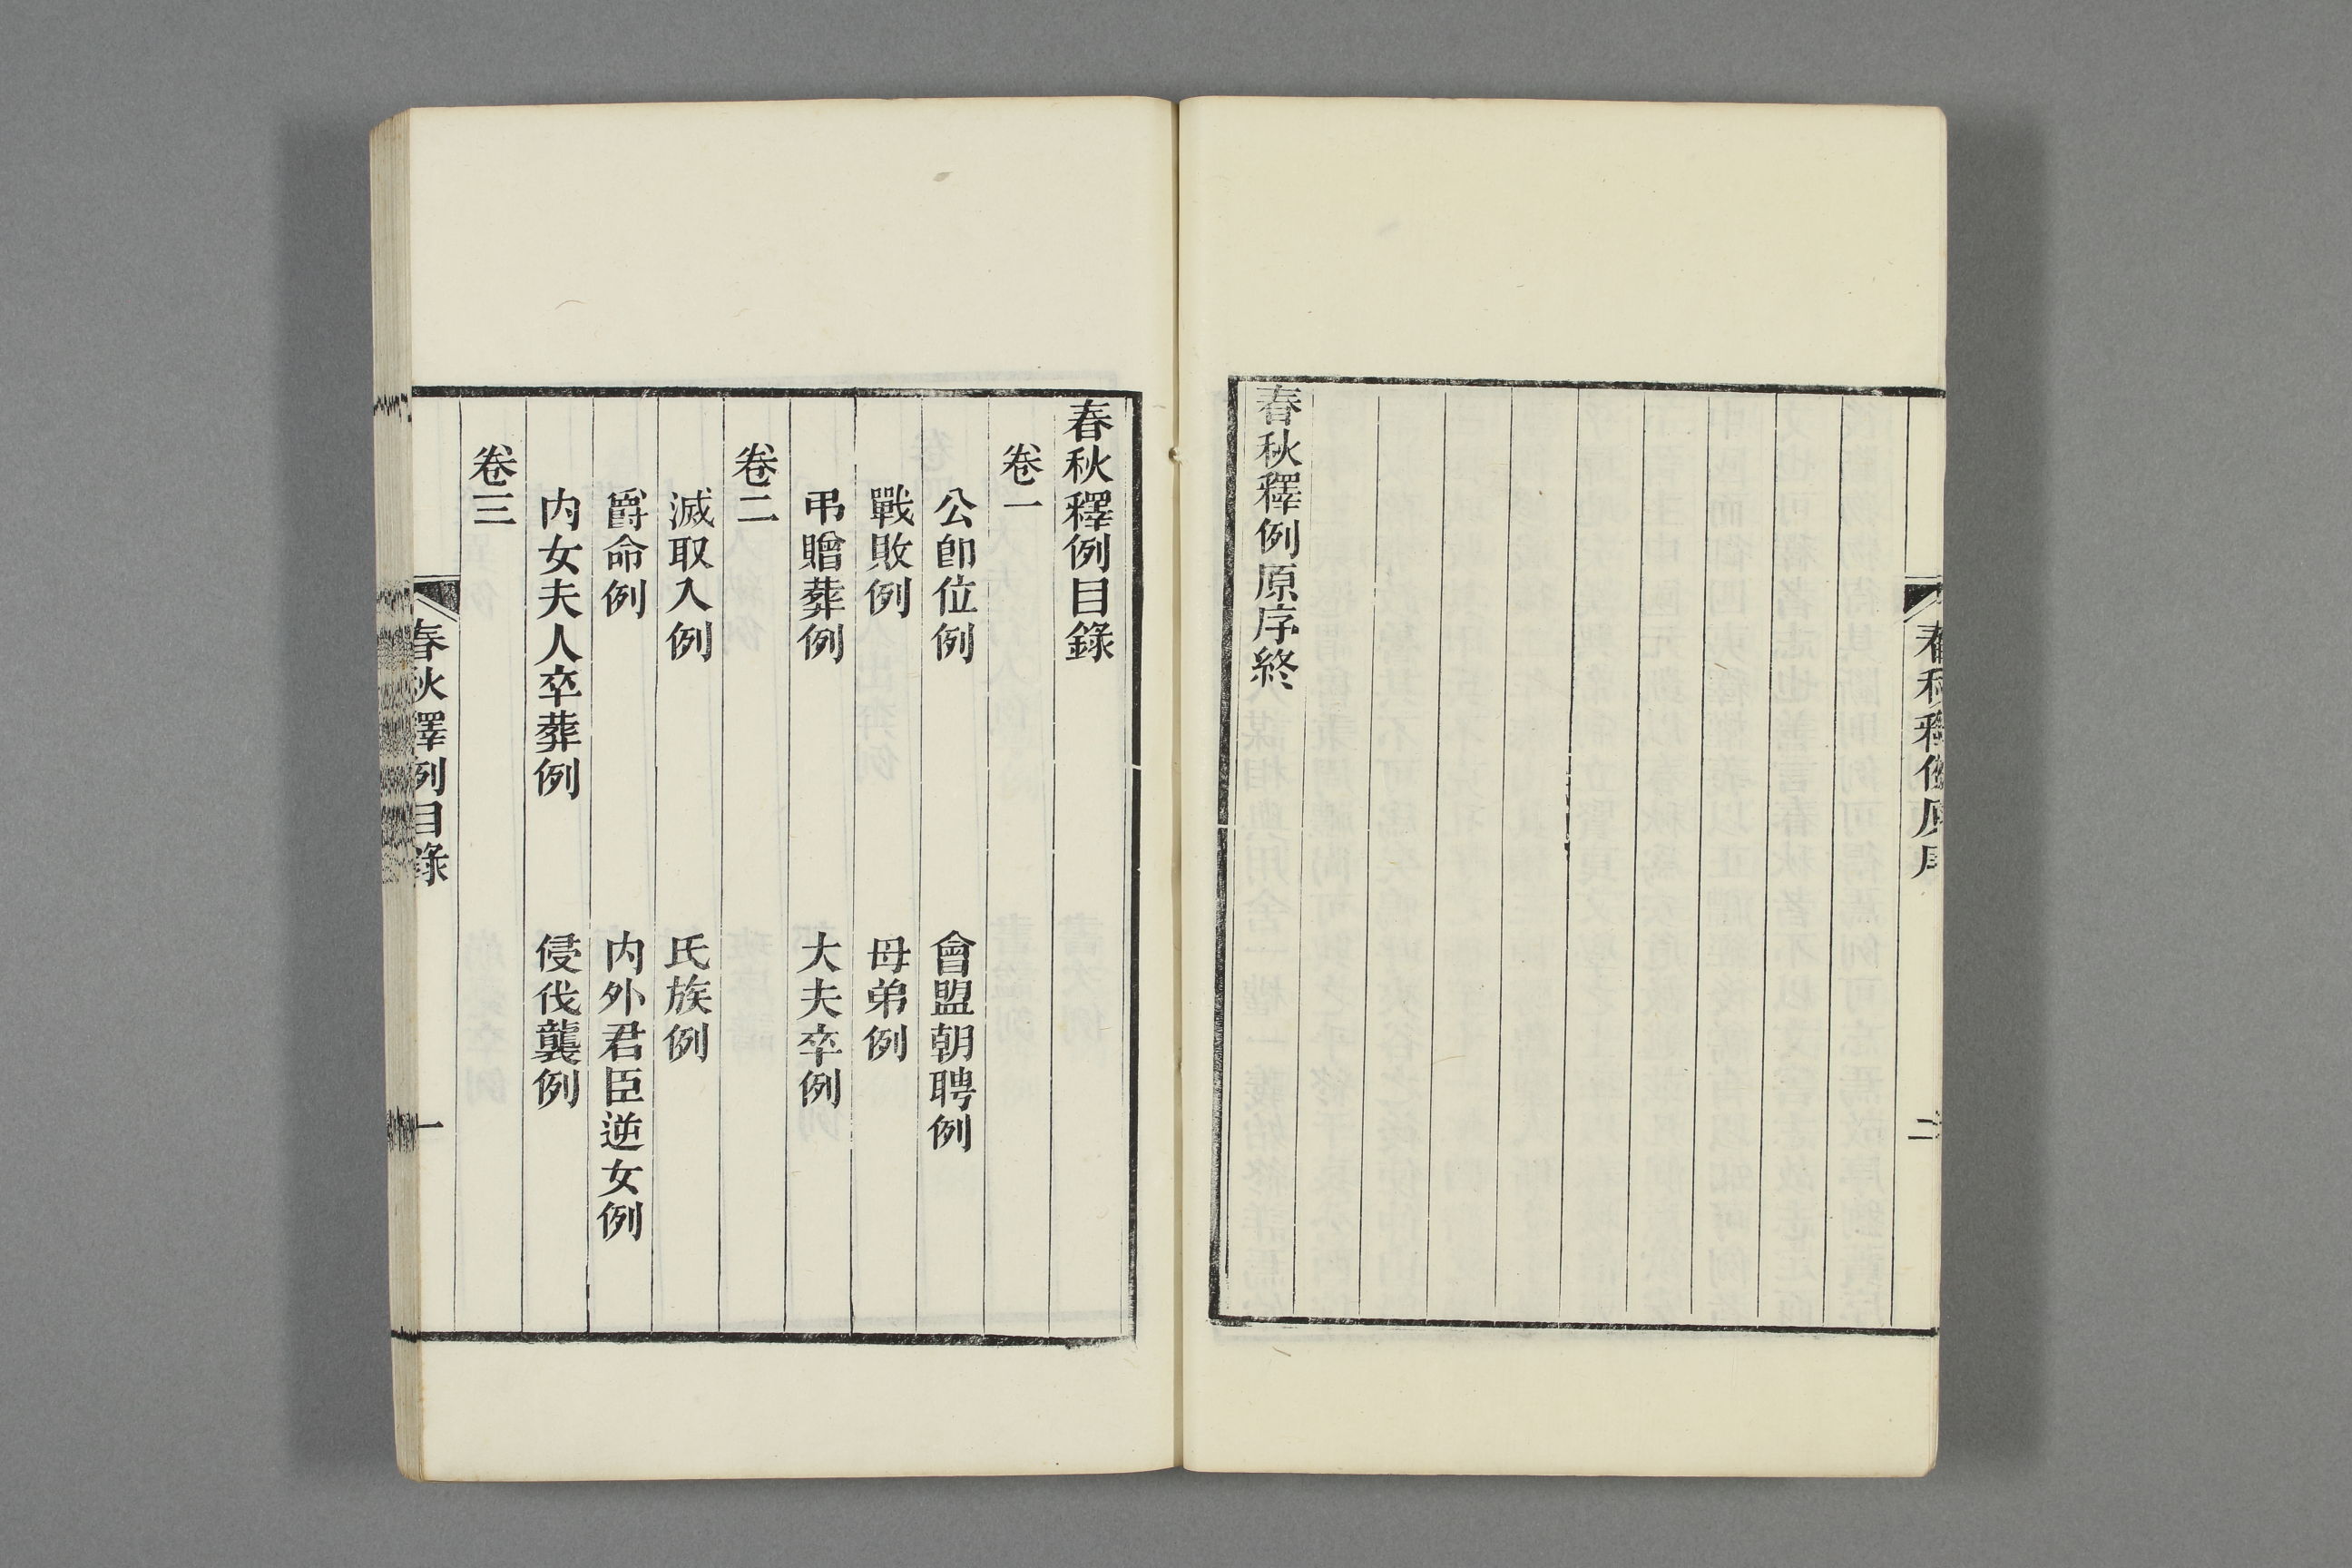 春秋釋例原序
二
春秋釋例原序終
春秋釋例目錄
卷一
公卽位例 會盟朝聘例
戰敗例 母弟例
弔贈葬例 大夫卒例
卷二
滅取入例 氏族例
爵命例 內外君臣逆女例
內女夫人卒葬例 侵伐襲例
卷三
春秋釋例目錄
一